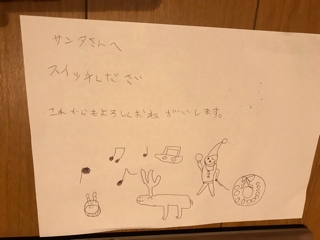 サンタさんへ
スイッチしださい
これからもよろしくおねがいします。